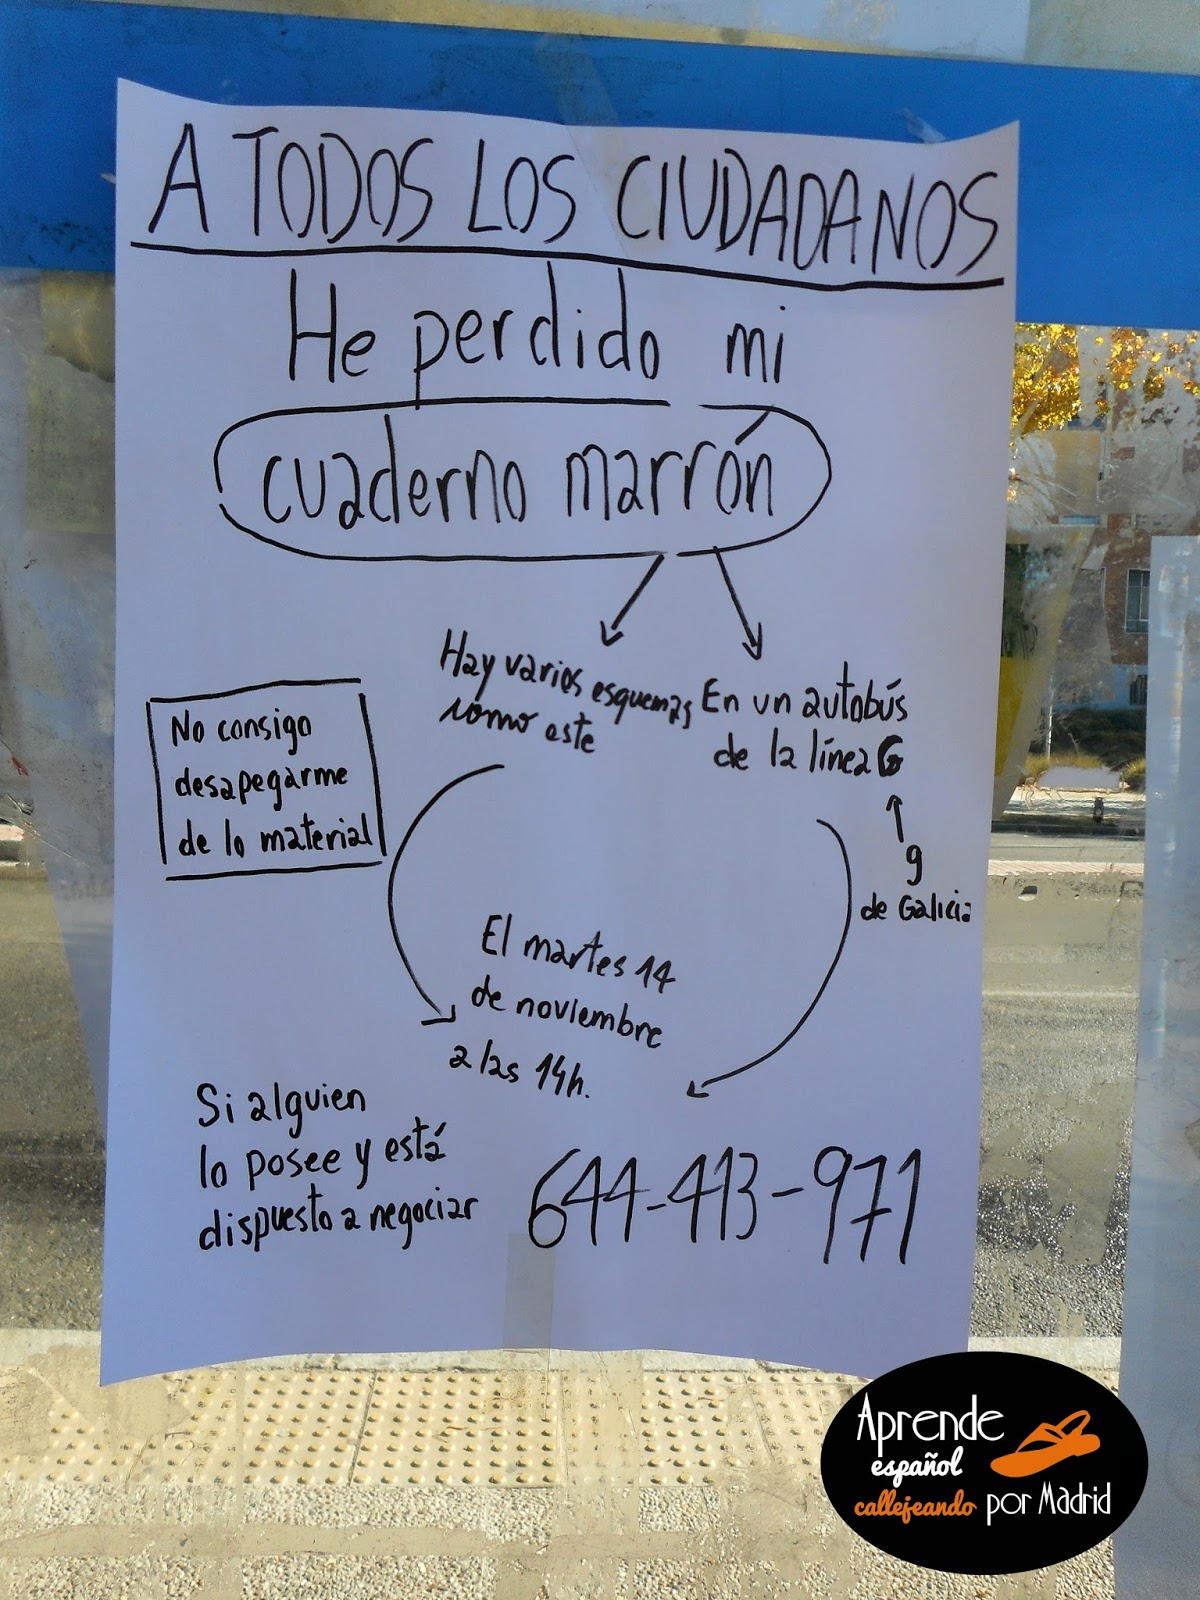 A TODOS LOS CIUDADANOS
He perdido mi
cuaderno marrón
Hay varios esquemas
como este
En un autobús
de la línea G
g
de Galicia
No consigo
desapegarme
de lo material
El martes 14
de noviembre
a las 14h.
Si alguien
lo posee y está
dispuesto a negociar
644-413-971
Aprende
español
callejeando por Madrid